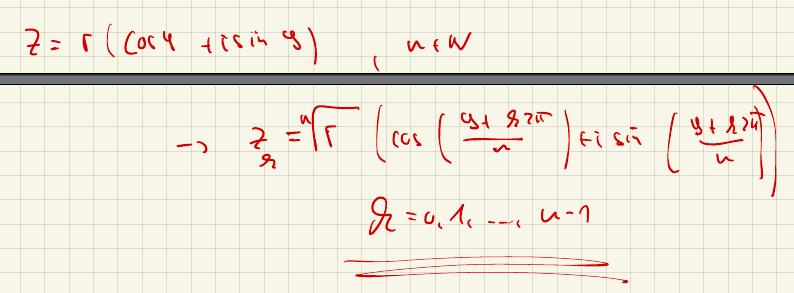 z = r (cos φ + i sin φ) , n ∈ N
→ z_k = ⁿ√r (cos (φ + k2π / n) + i sin (φ + k2π / n))
k = 0, 1, ..., n-1